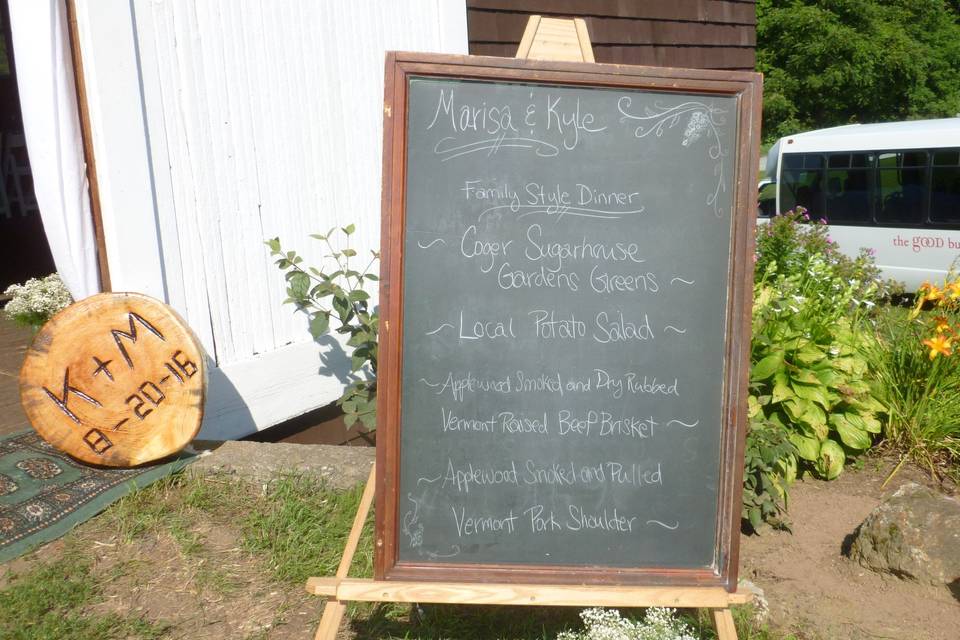 Marisa & Kyle
Family Style Dinner
~ Coger Sugarhouse
Gardens Greens ~
~ Local Potato Salad ~
~ Applewood Smoked and Dry Rubbed
Vermont Raised Beef Brisket ~
~ Applewood Smoked and Pulled
Vermont Pork Shoulder ~
K + M
8-20-16
the gOOD bu